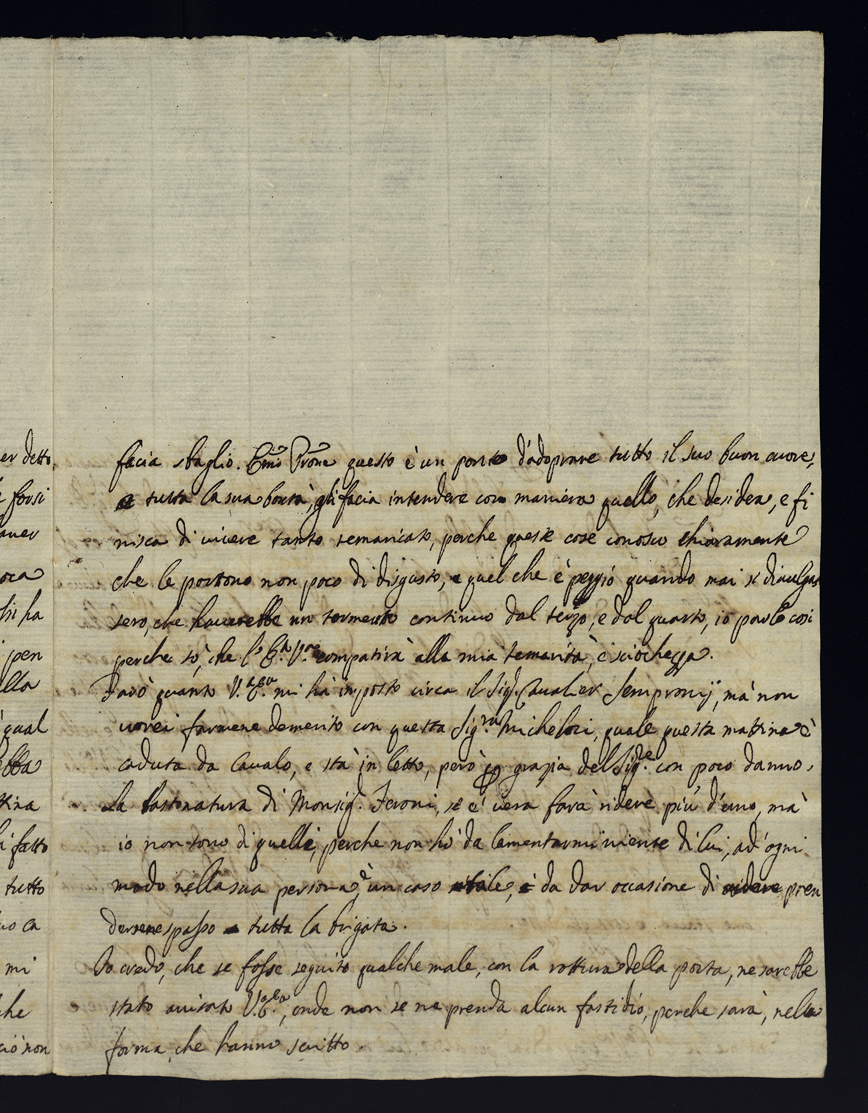 er detto
forsi
aver
oca
hi ha
pen
lla
qual
ebba
tina
fatto
tutto
uo ca
mi
che
ciò non
facia sbaglio. Emo Prone questo è un ponto d'adoprare tutto il suo buon cuore,
e tutta la sua bontà, gli facia intendere con maniera quello, che desidera, e fi
nisca di vivere tanto ramaricato, perche queste cose conosco chiaramente
che le portono non poco di disgusto, e quel che è peggio quando mai si divulgas
sero, che haverebbe un tormento continuo dal terzo, e dal quarto, io parlo cosi
perche sò, che l' E.a V.ra compatirà alla mia temerità, è sciochezza.
Farò quanto V. E.za mi hà imposto circa il Sig.r Cavalier Sempronij, mà non
vorei farmene demerito con questa Sig.ra Michelori, quale questa matina è
caduta da cavalo, e stà in letto, però per grazia del Sig.re con poco danno,
La bastonatura di Monsig.r Feroni, se è vera farà ridere più d'uno, mà
io non sono di quelli, perche non hò da lamentarmi niente di lui, ad ogni
modo nella sua persona è un caso tale, è da dar occasione di pren
dersene spasso a tutta la brigata.
Io credo, che se fosse seguito qualche male, con la rottura della porta, ne sarebbe
stato avisato V. E.za, onde non se ne prenda alcun fastidio, perche sarà, nella
forma, che hanno scritto.